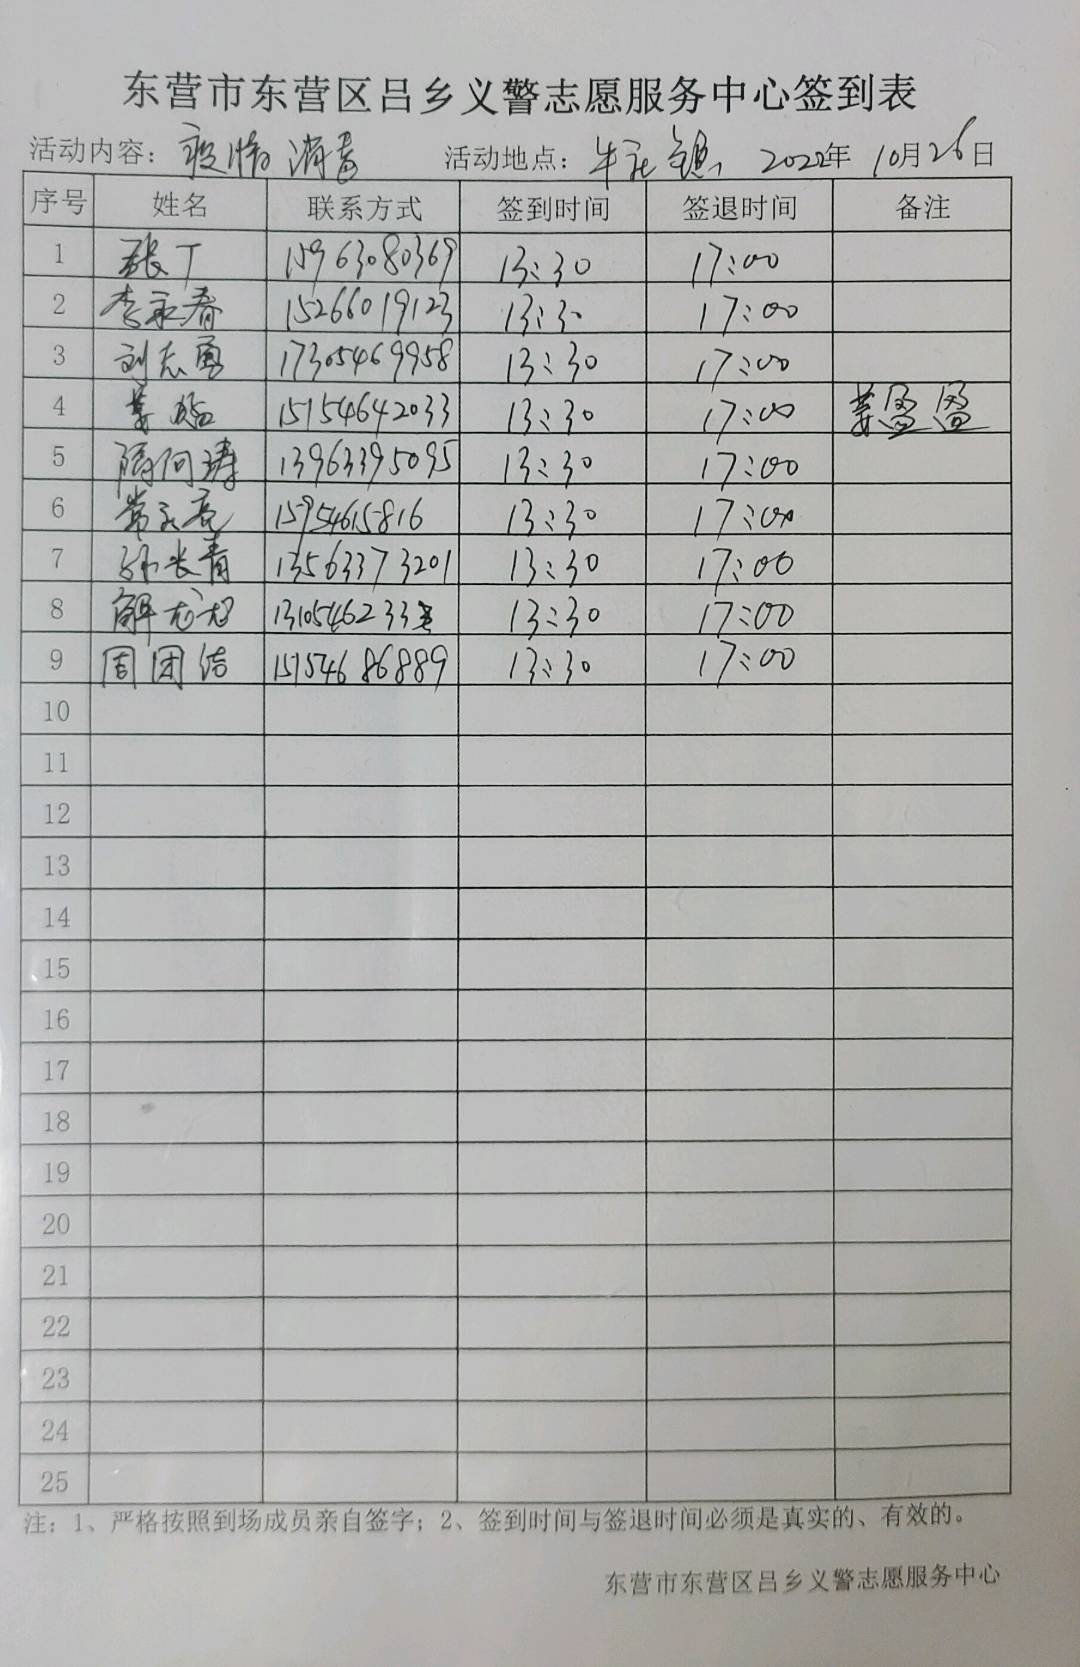 东营市东营区吕乡义警志愿服务中心签到表
活动内容：疫情消毒 活动地点：牛庄镇 2022年10月26日
序号 姓名 联系方式 签到时间 签退时间 备注
1 张丁 15963080369 13:30 17:00
2 李永春 15266019123 13:30 17:00
3 刘志勇 17305469958 13:30 17:00
4 姜 15154642033 13:30 17:00 姜盈盈
5 13963395095 13:30 17:00
6 常永亮 15954615816 13:30 17:00
7 孙长青 13563373201 13:30 17:00
8 解志超 1310546233 13:30 17:00
9 周团结 15154686889 13:30 17:00
10
11
12
13
14
15
16
17
18
19
20
21
22
23
24
25
注：1、严格按照到场成员亲自签字；2、签到时间与签退时间必须是真实的、有效的。
东营市东营区吕乡义警志愿服务中心